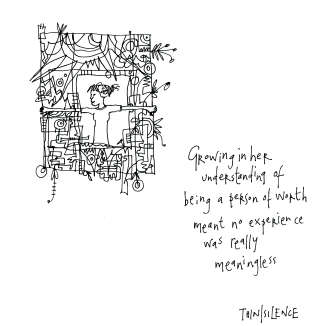 Growing in her
understanding of
being a person of worth
meant no experience
was really
meaningless
THIN|SILENCE